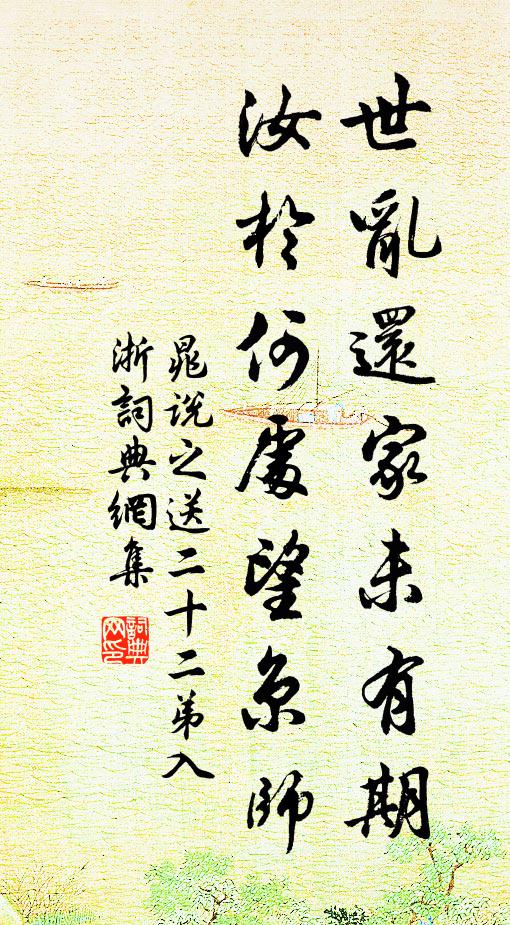 世亂還家未有期
汝於何處望京師
晁説之送二十二弟入
浙詞典網集
詞典网印